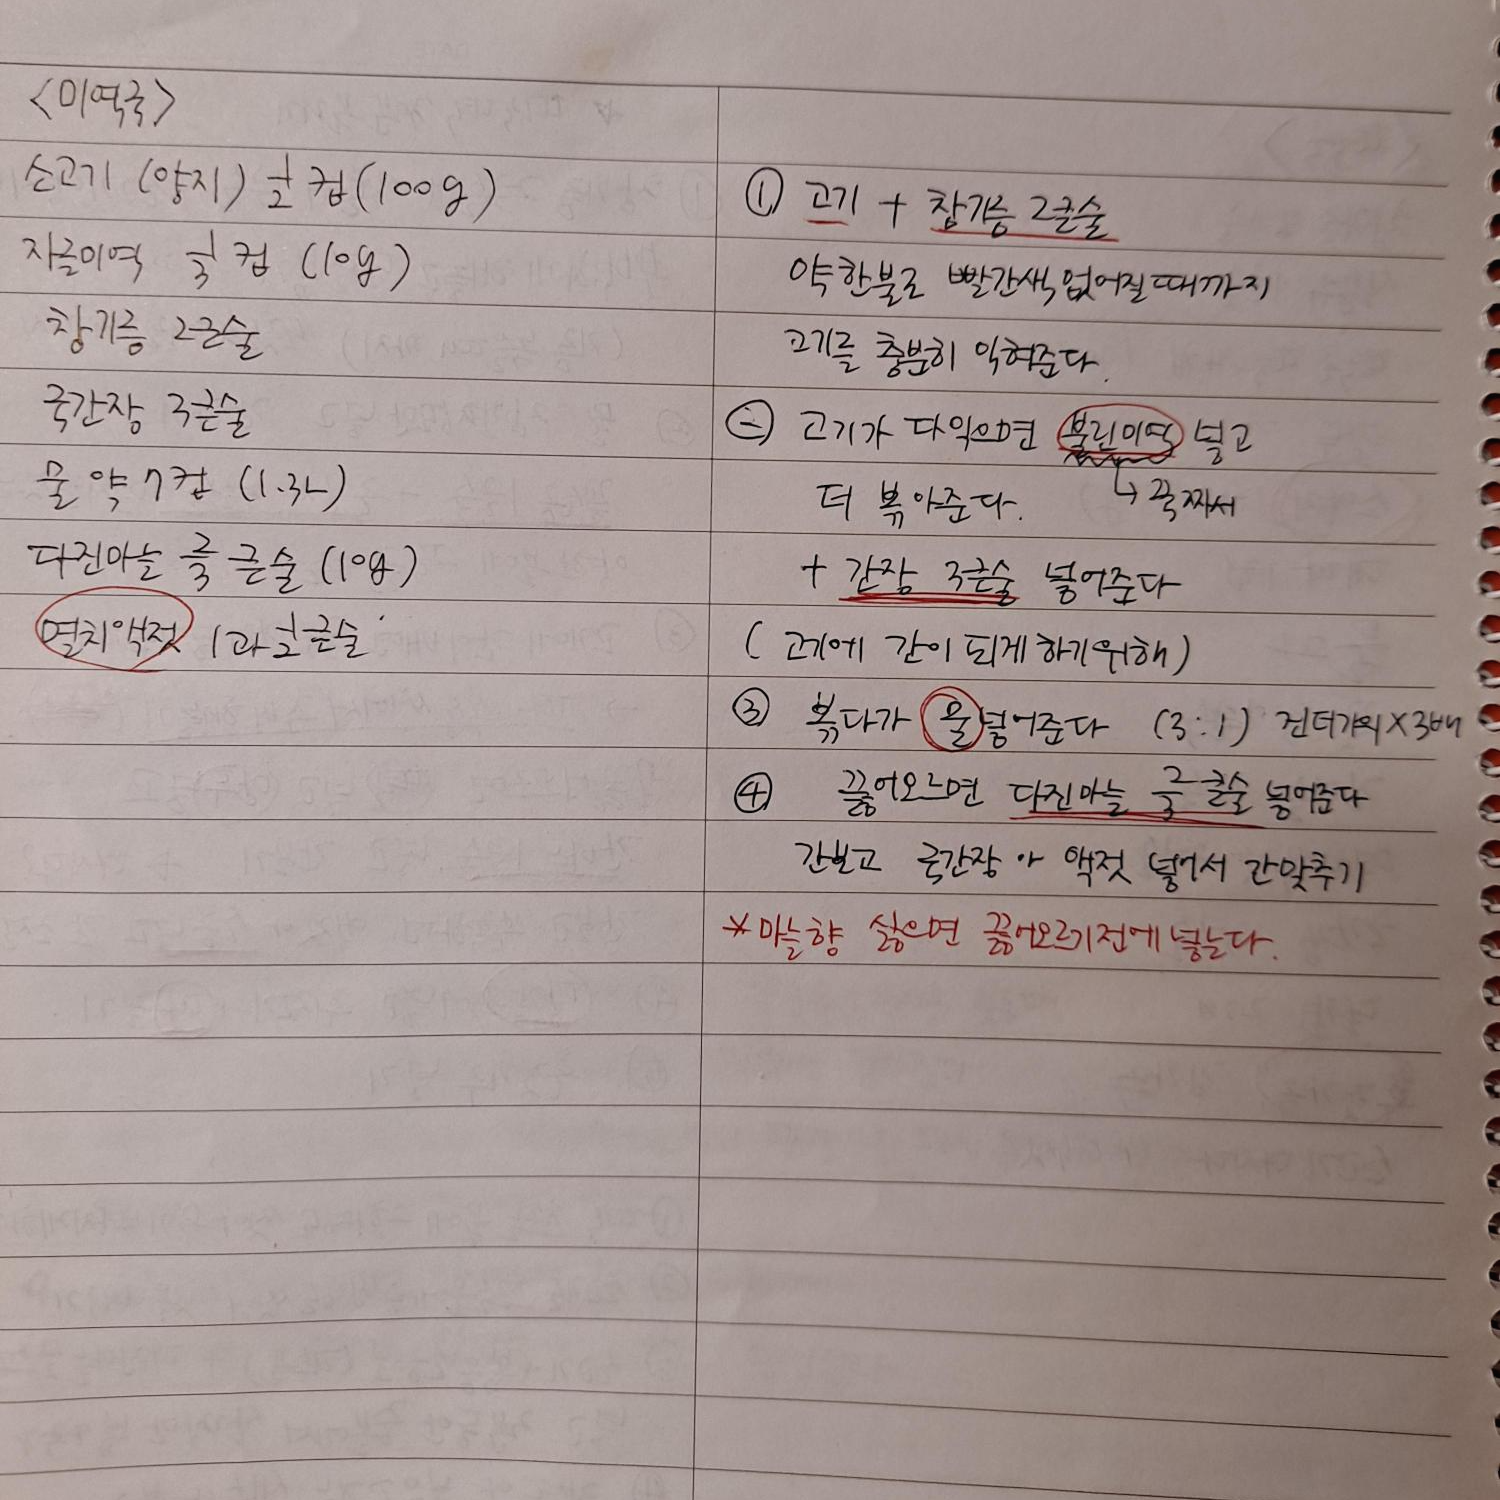 <미역국>
소고기 (양지) 1/2 컵 (100g)
자른미역 1/3 컵 (10g)
참기름 2큰술
국간장 3큰술
물 약 7컵 (1.3L)
다진마늘 2/3 큰술 (10g)
멸치액젓 1과 1/2 큰술
① 고기 + 참기름 2큰술
약한불로 빨간색 없어질때까지
고기를 충분히 익혀준다.
② 고기가 다익으면 불린미역 넣고
더 볶아준다. ↳ 꼭짜서
+ 간장 3큰술 넣어준다
( 고기에 간이 되게 하기위해)
③ 볶다가 물넣어준다 (3:1) 건더기의×3배
④ 끓어오르면 다진마늘 2/3 큰술 넣어준다
간보고 국간장 아 액젓 넣어서 간맞추기
*마늘향 싫으면 끓어오르기전에 넣는다.